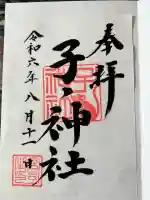 奉拝
子ノ神社
令和六年八月十一日